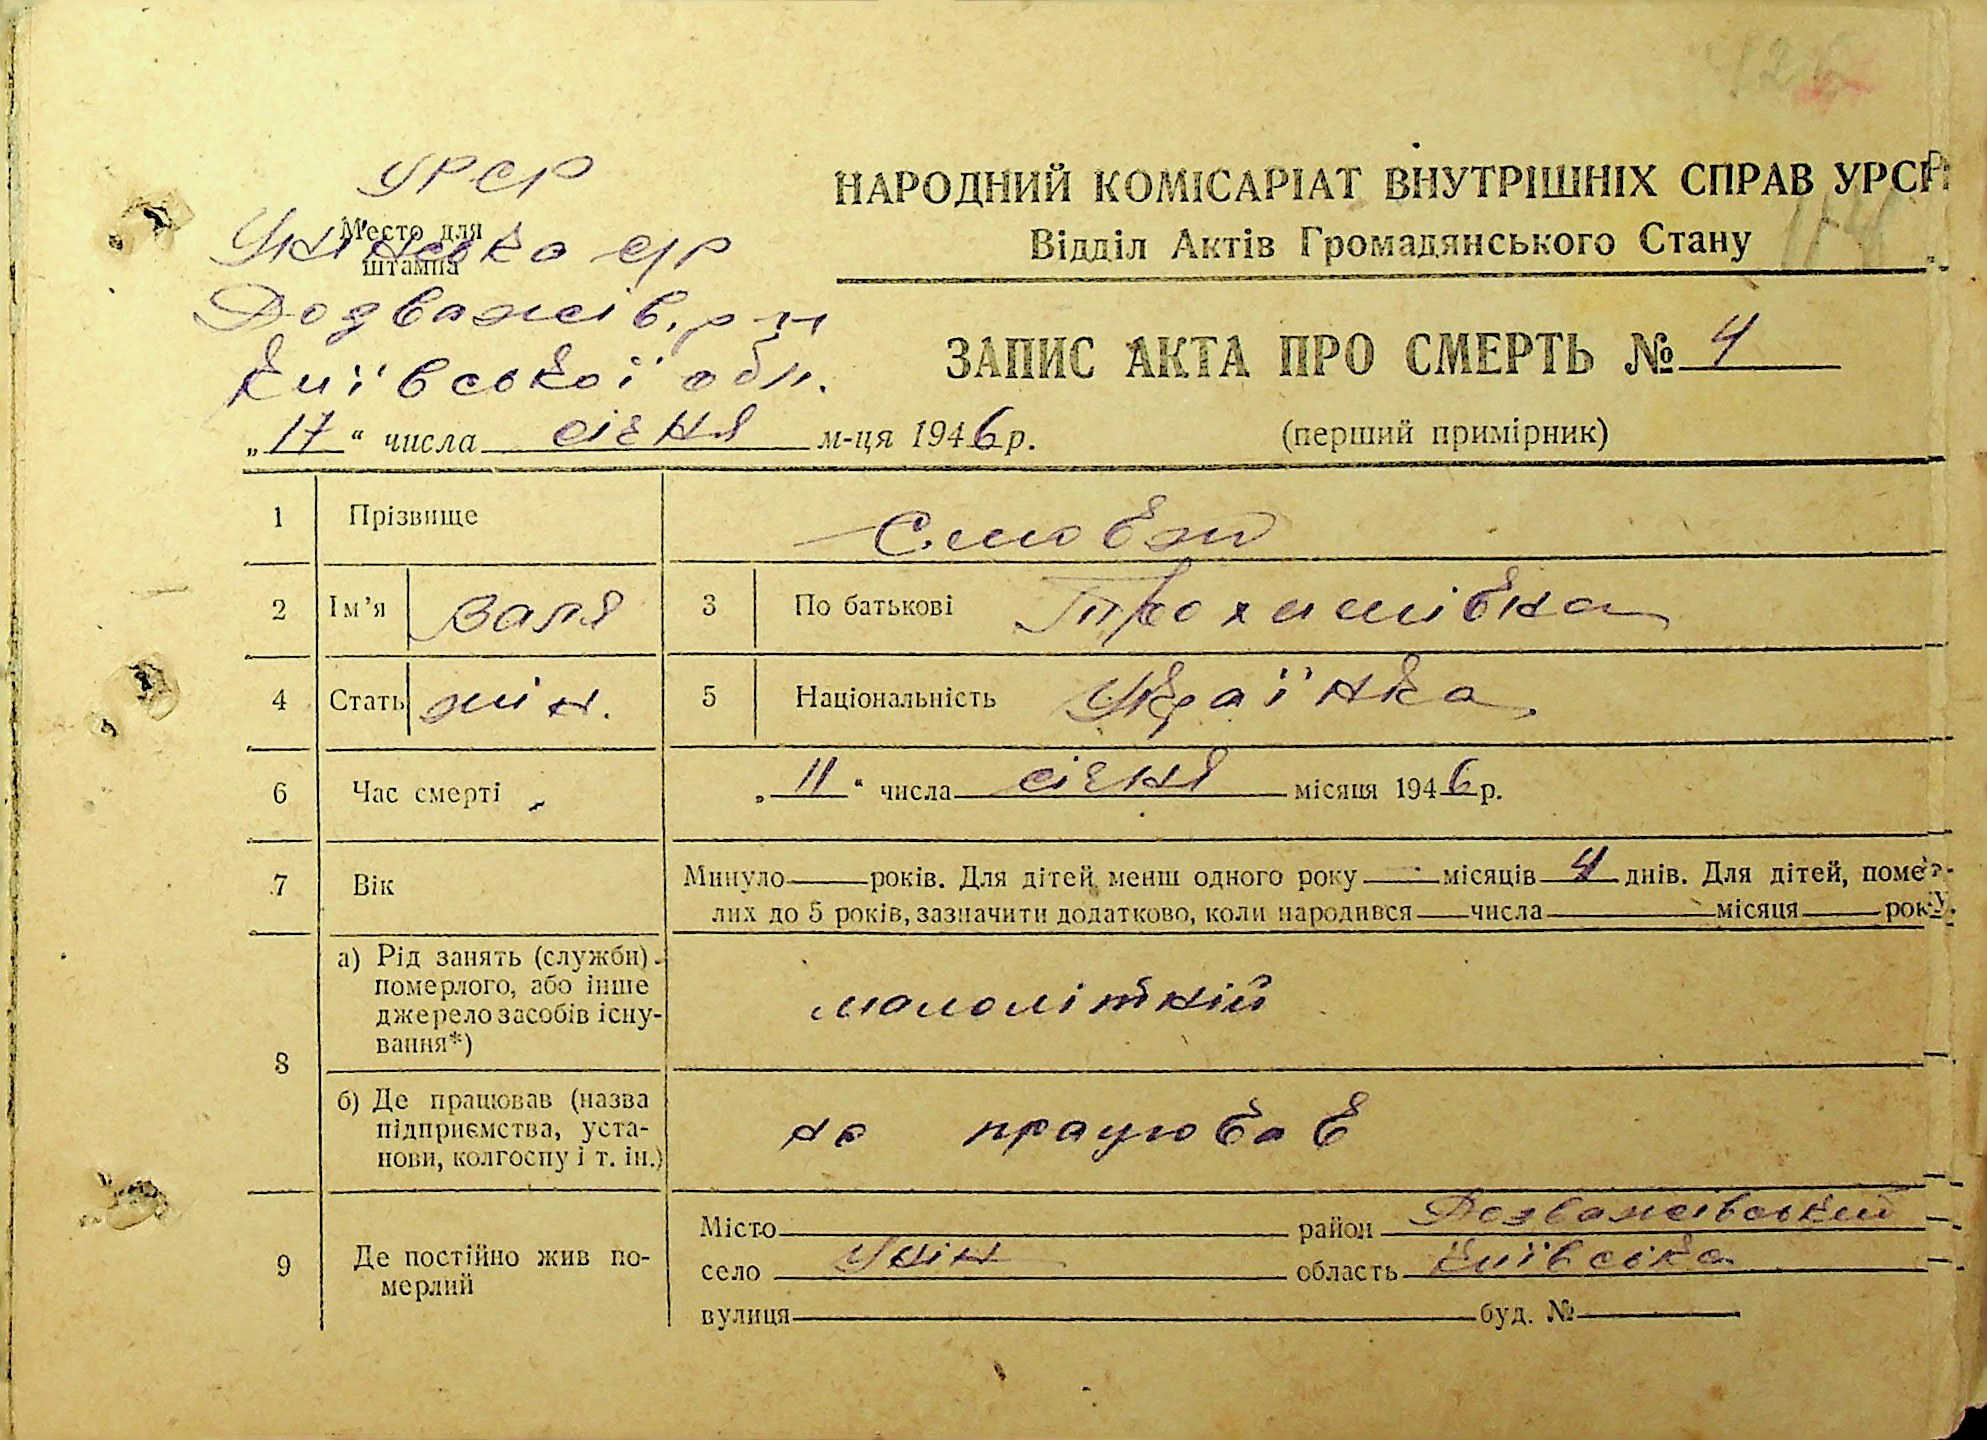 УРСР
Место для
штампа
Унінська с/р
Розважів. р-н
Київської обл.
НАРОДНИЙ КОМІСАРІАТ ВНУТРІШНІХ СПРАВ УРСР
Відділ Актів Громадянського Стану
ЗАПИС АКТА ПРО СМЕРТЬ № 4
„17“ числа січня м-ця 1946 р.
(перший примірник)
1 Прізвище
2 Ім’я Валя 3 По батькові Трохимівна
4 Стать жін. 5 Національність Українка
6 Час смерті „11“ числа січня місяця 1946 р.
7 Вік Минуло — років. Для дітей менш одного року — місяців 4 днів. Для дітей, поме-
рлих до 5 років, зазначити додатково, коли народився числа місяця року.
8 а) Рід занять (служби)
померлого, або інше
джерело засобів існу-
вання*)
малолітній
б) Де працював (назва
підприємства, уста-
нови, колгоспу і т. ін.)
не працював
9 Де постійно жив по-
мерлий
Місто район Розважівський
село Унін область Київська
вулиця буд. №